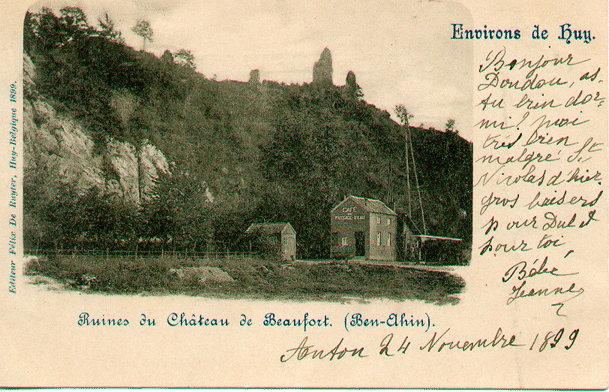 Environs de Huy.
Bonjour
Doudou, as
tu bien dor
mi? moi
très bien
malgré St
Nicolas d'hier
gros baisers
pour Dul et
pour toi
Bébé
Jeanne
Editeur Félix De Ruyter, Huy-Belgique 1899.
CAFÉ
Ruines du Château de Beaufort. (Ben-Ahin).
24 Novembre 1899